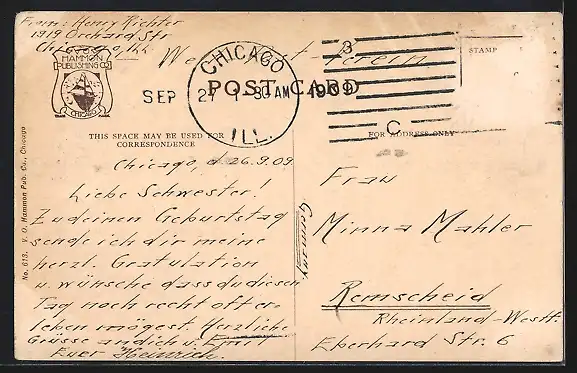 From: Henry Richter
1919 Orchard Str
Chicago, Ill
HAMMON
PUBLISHING CO
CHICAGO
CHICAGO
SEP 27 1-30 AM 1909
ILL.
3
C
POST CARD
STAMP
THIS SPACE MAY BE USED FOR
CORRESPONDENCE
FOR ADDRESS ONLY
No. 613. V. O. Hammon Pub. Co., Chicago
Chicago, d. 26.9.09
Liebe Schwester!
Zu deinen Geburtstag
sende ich dir meine
herzl. Gratulation
u. wünsche dass du diesen
Tag noch recht ofter-
leben mögest. Herzliche
Grüsse an dich u. Emil
Euer Heinrich.
Frau
Minna Mahler
Remscheid
Rheinland-Westf.
Eberhard Str. 6
Germany